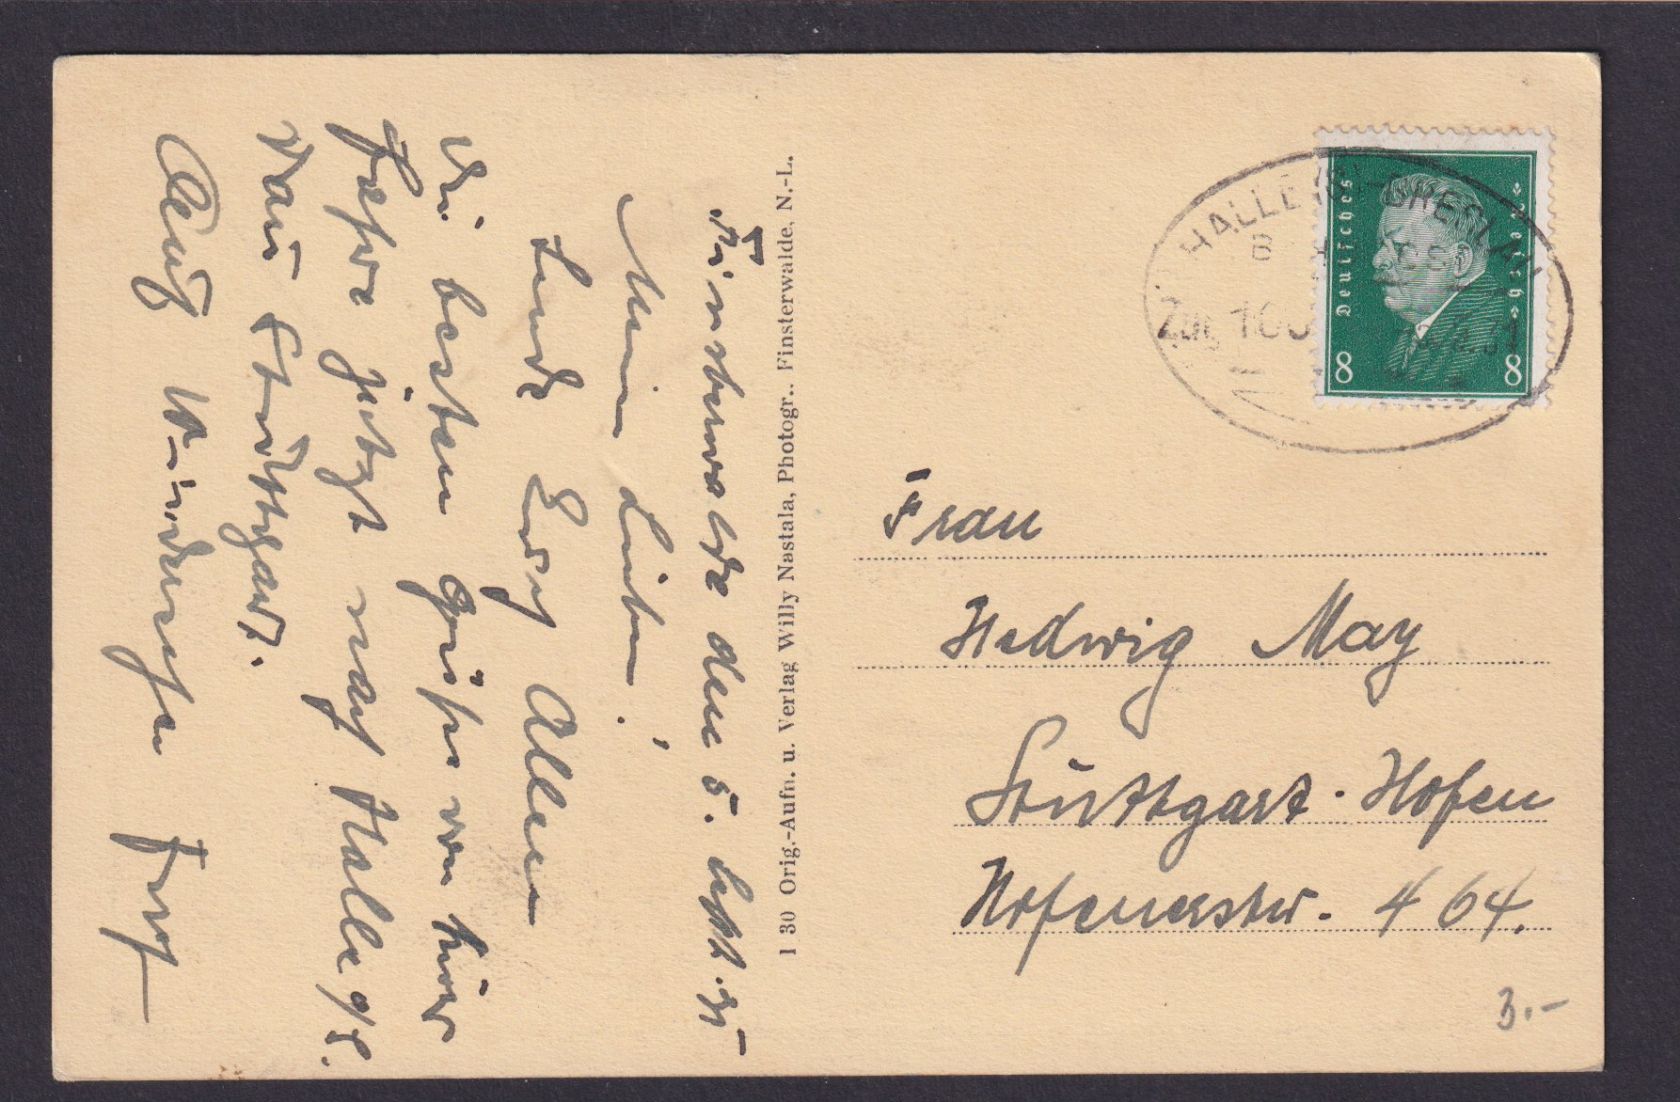 Finsterwalde den 5. Sept. 31
Mein Lieben!
Sende Euch Allen
die besten Grüße von hier
fahre jetzt nach Halle a/S.
dann Stuttgart.
Auf Wiedersehen
1 30 Orig.-Aufn. u. Verlag Willy Nastala, Photogr., Finsterwalde, N.-L.
HALLE BRESLAU
Zug
Deutsches Reich
8 8
Frau
Hedwig May
Stuttgart-Hofen
Hofenerstr. 464.
3.-